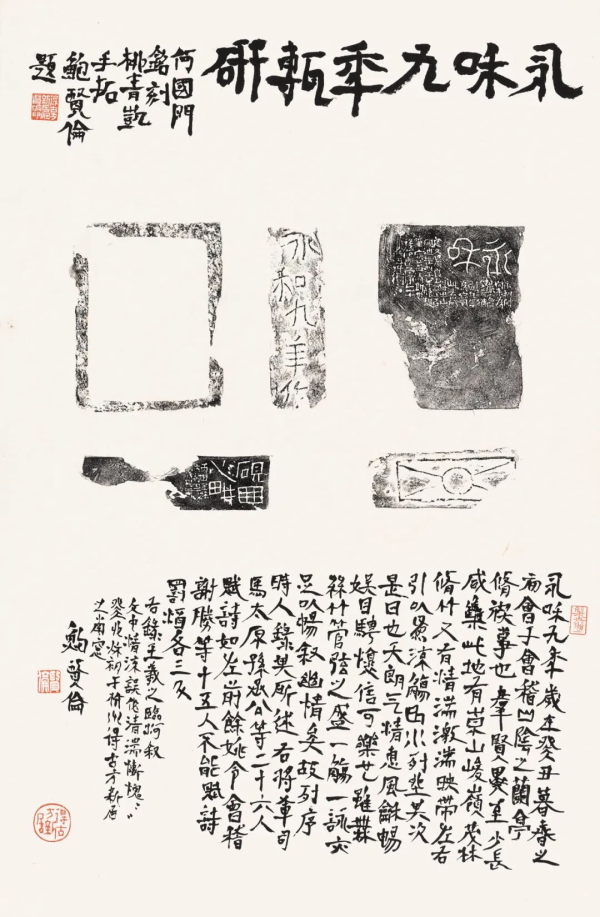 永咊九秊甎研
何國門
銘刻
桃青凱
手拓
鮑賢倫
題
永咊
永和九年作
永咊九年歲在癸丑暮春之
會于會稽山陰之蘭亭
脩禊事也羣賢畢至少長
咸集此地有崇山峻嶺茂林
脩竹又有清湍激湍映帶左右
引以爲流觴曲水列坐其次
是日也天朗气清惠風龢暢
娛目騁懷信可樂也雖無
絲竹管弦之盛一觴一詠亦
足以暢敘幽情矣故列序
時人錄其所述右將軍司
馬太原孫丞公等二十六人
賦詩如左前餘姚令會稽
謝勝等十五人不能賦詩
罰酒各三斗
右錄王羲之臨河叙
之南窗
鮑賢倫